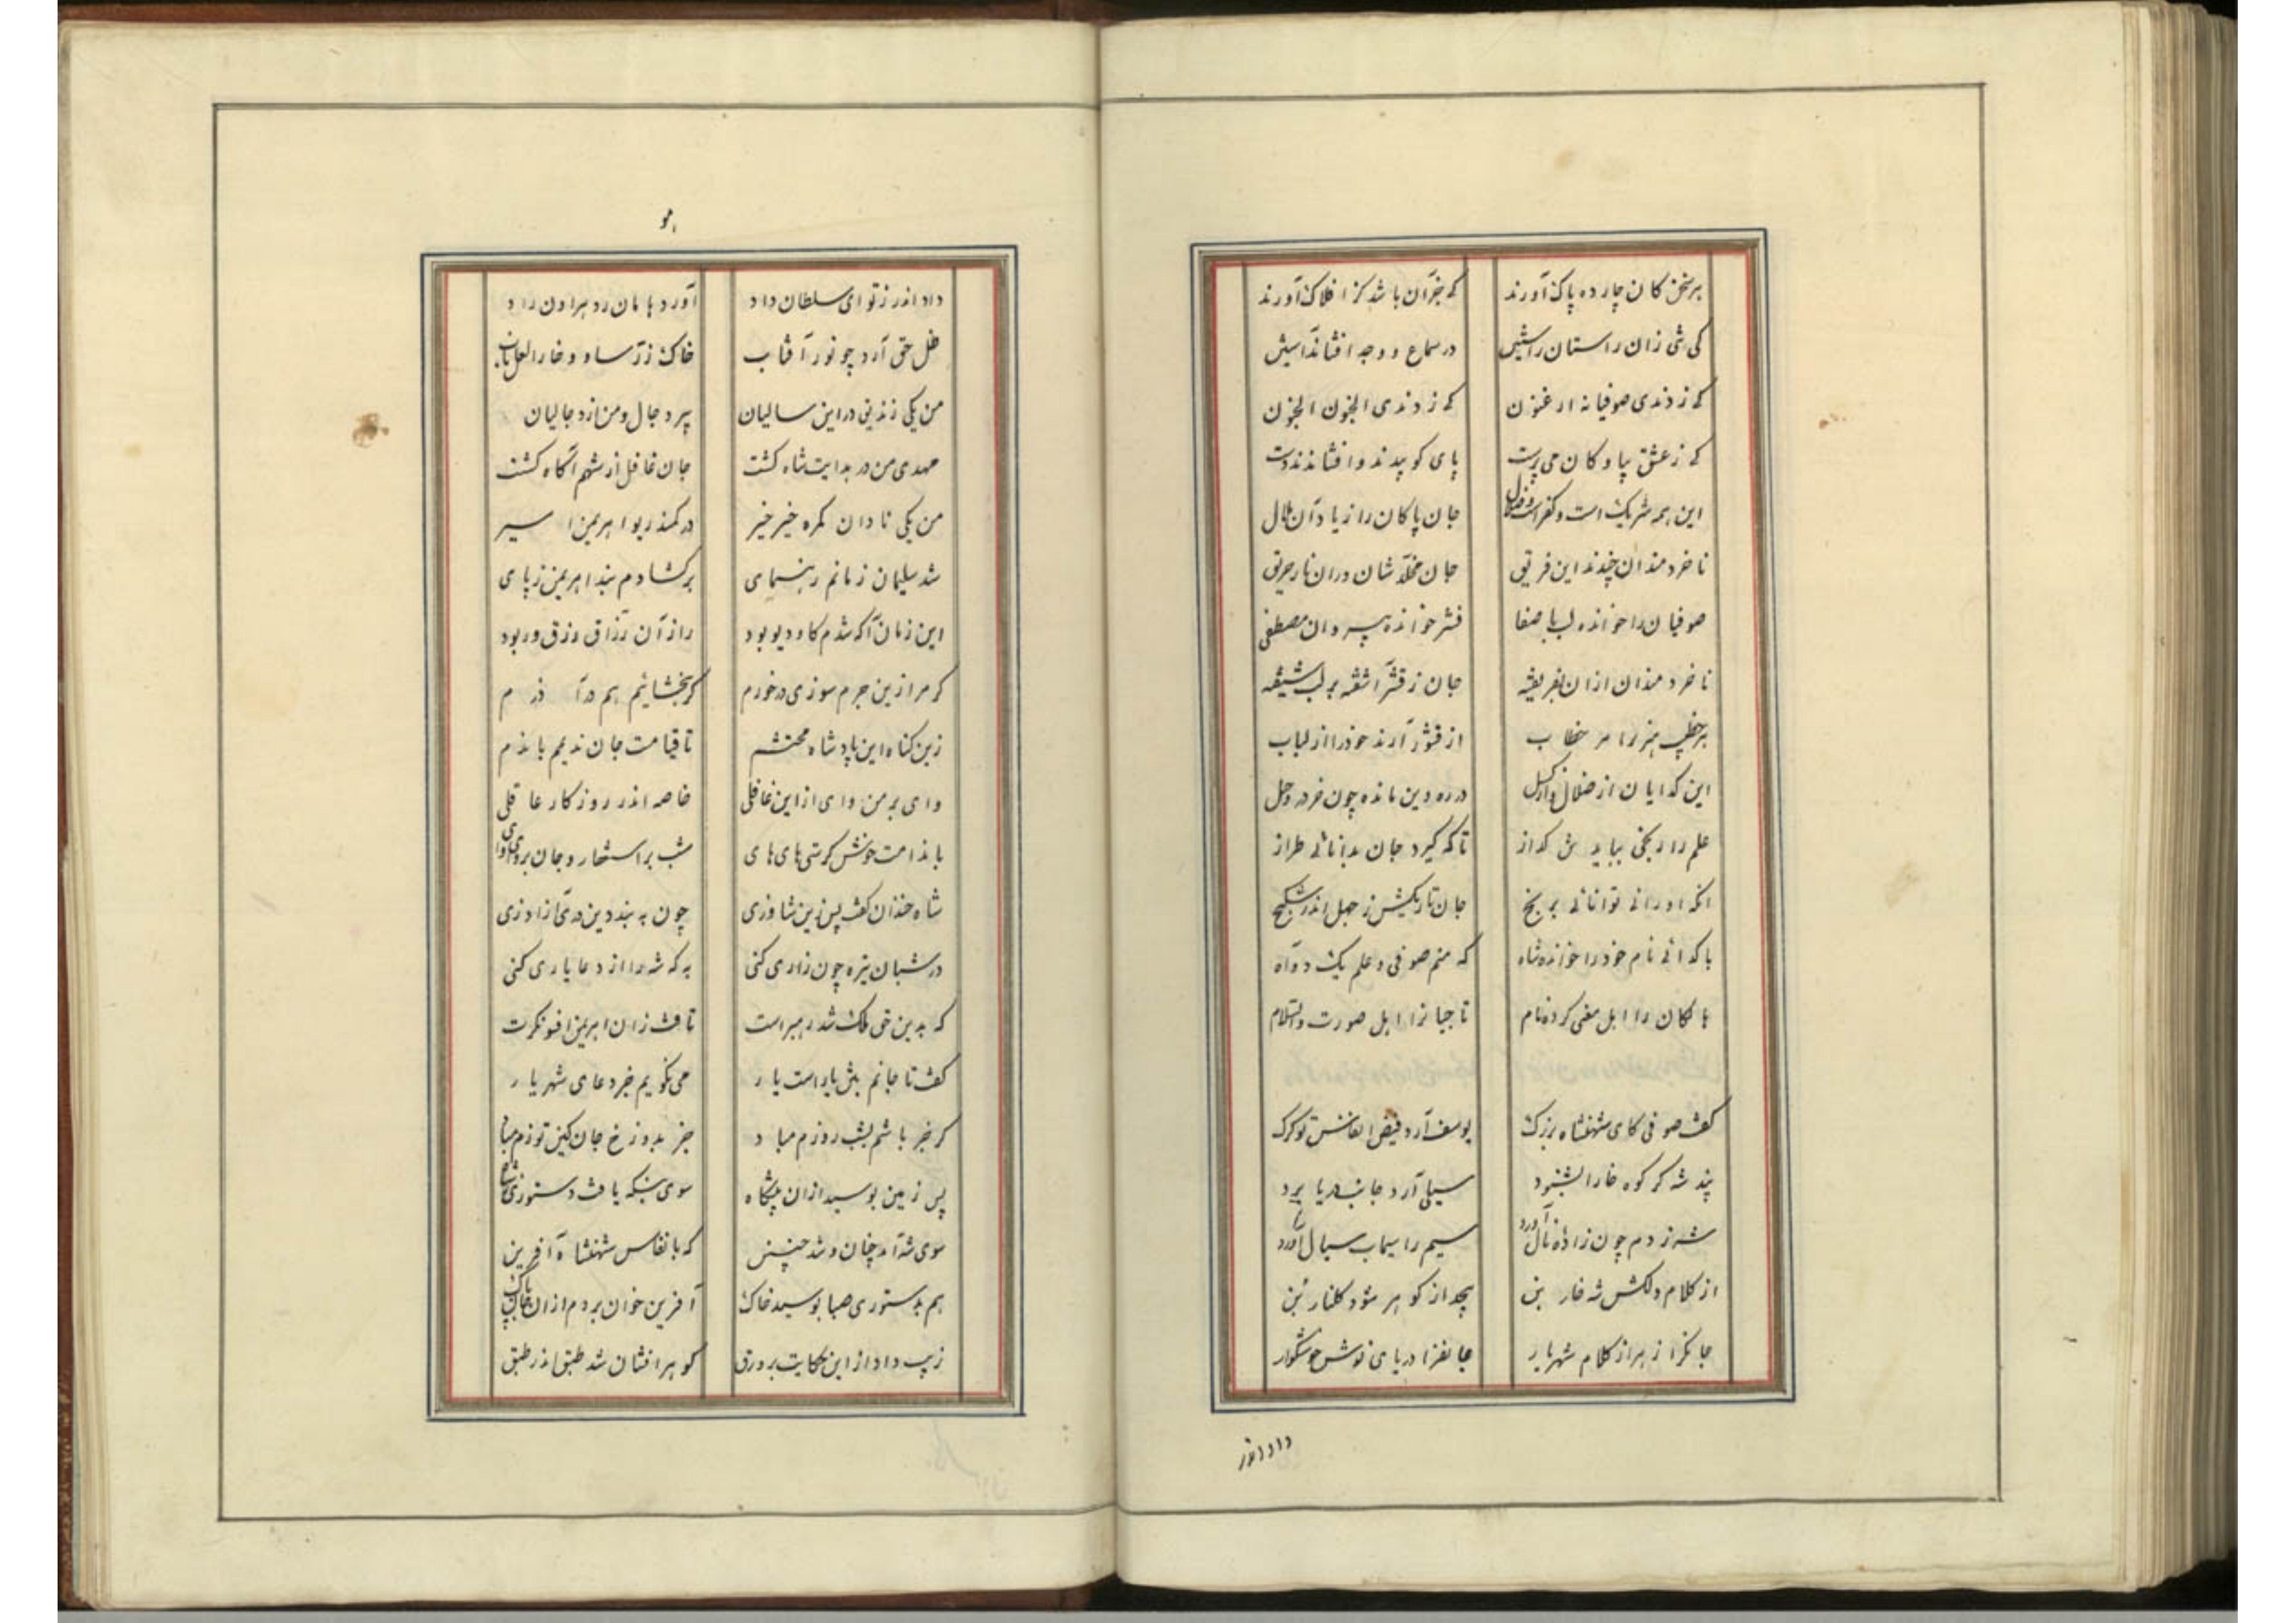 هر سخن کان چارده پاک آورند که جز آن باشد کز افلاک آورند
کی شی زان راستان در سماع و وجد افشاند آستین
که زدندی صوفیانه ارغنون که زدندی الجنون الجنون
که ز عشق پیاوکان می پرست پای کوبیدند و افشاندند دست
این همه شرک است و کفر است و ضلال جان پاکان را زیاد آن ملال
ناخردمندان چندند این فریق جان مخلدشان در آن نار حریق
صوفیان را خوانده لب با صفا قشر خوانده پیروان مصطفی
ناخردمندان ازان بفریفته جان ز قشر آشفته بر لب شیفته
از قشور آرند خود را از لباب
این گدایان از ضلال در ره دین مانده چون خر در وحل
علم را رنجی بباید تا که گیرد جان بدانائی طراز
انکه او رانی توانائی برنج جان تاریکش ز جهل اندر شکنج
با گدائی نام خود را خوانده شاه که منم صوفی و علم یک دو آه
پاکان را اهل معنی کرده نام تا جیانرا اهل صورت والسلام
گفت صوفی کای شهنشاه بزرگ یوسف آرد فیض انفاست ز گرگ
پند شه گر کوه خارا بشنود سیلی آرد جانب دریا برد
شه ز دم چون زاده نال آورد سیم را سیماب سیال آورد
از کلام دلکش شه خار بن بچد از گوهر شود گلنار بن
جانگزا زهر از کلام شهریار جانفزا دریای نوش خوشگوار
داد اندرز
داد اندرز تو ای سلطان داد آورد هامان رد هراون راد
ظل حق آرد چو نور آفتاب خاک زر آساد و خارا لعل ناب
من یکی زندیق در این سالیان پیرو دجال و من از دجالیان
مهدی من در هدایت شاه گشت جان غافل از شهم آگاه گشت
من یکی نادان گمره خیر خیر در کمند ریو اهریمن اسیر
شد سلیمان زمانم رهنمای برگشادم بند اهریمن ز پای
این زمان آگه شدم کاو دیو بود راز آن رزاق رزق ور بود
گر مرا زین جرم سوزی در خورم گر ببخشائیم هم در آذرم
زین گناه این پادشاه محتشم تا قیامت جان ندیم با ندم
وای بر من وای از این غافلی خاصه اندر روزگار عاقلی
با ندامت خوش گرستی های های شب بر استغفار و جان بر وای وای
شاه خندان گفت پس زین شاوزی چون به بند دین دمی آزاد زی
در شبان تیره چون زاری کنی به که شه را از دعا یاری کنی
که بدین حق ملک شد رهبرت تافت زان اهریمن افسونگرت
گفت تا جانم بتن یار است یار می نگویم جز دعای شهریار
گر جز باشم بشب روزم مباد جز بدوزخ جان کین توزم مباد
پس زمین بوسید ازان پیشگاه سوی بنگه یافت دستوری ز شاه
سوی شه آمد چنان و شد چنین که بانفاس شهنشاه آفرین
هم بدستوری صبا بوسید خاک آفرین خوان بردم ازان خاک پاک
زیب داد از این حکایت بر ورق گوهر افشان شد طبق اندر طبق